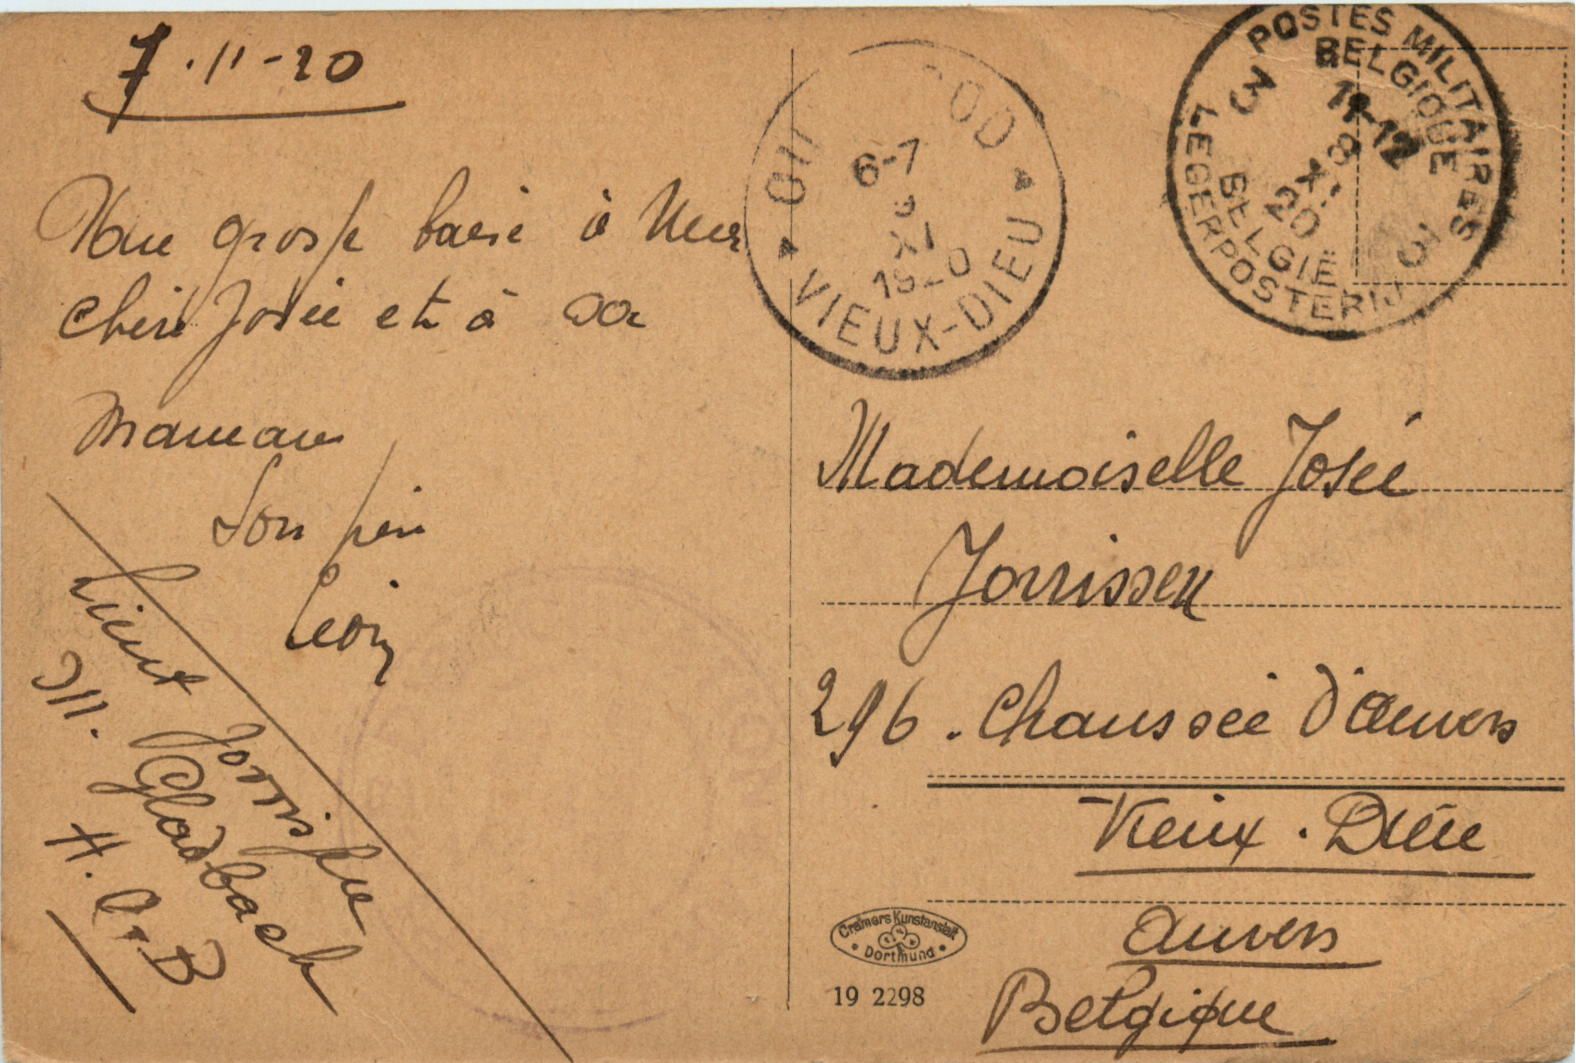 7.11-20
Une grosse baise à ma
chère Josée et à sa
maman
Son père
Léon
Lieut Jorrissen
M. Gladbach
H. A. B
OUD
VIEUX-DIEU
6-7
XI
1920
POSTES MILITAIRES
BELGIQUE
3
11-12
8
XI
20
3
BELGIE
LEGERPOSTERIJ
Mademoiselle Josée
Jorrissen
296. Chaussée d'Anvers
Vieux-Dieu
Anvers
Belgique
Cramers Kunstanstalt
Dortmund
19 2298